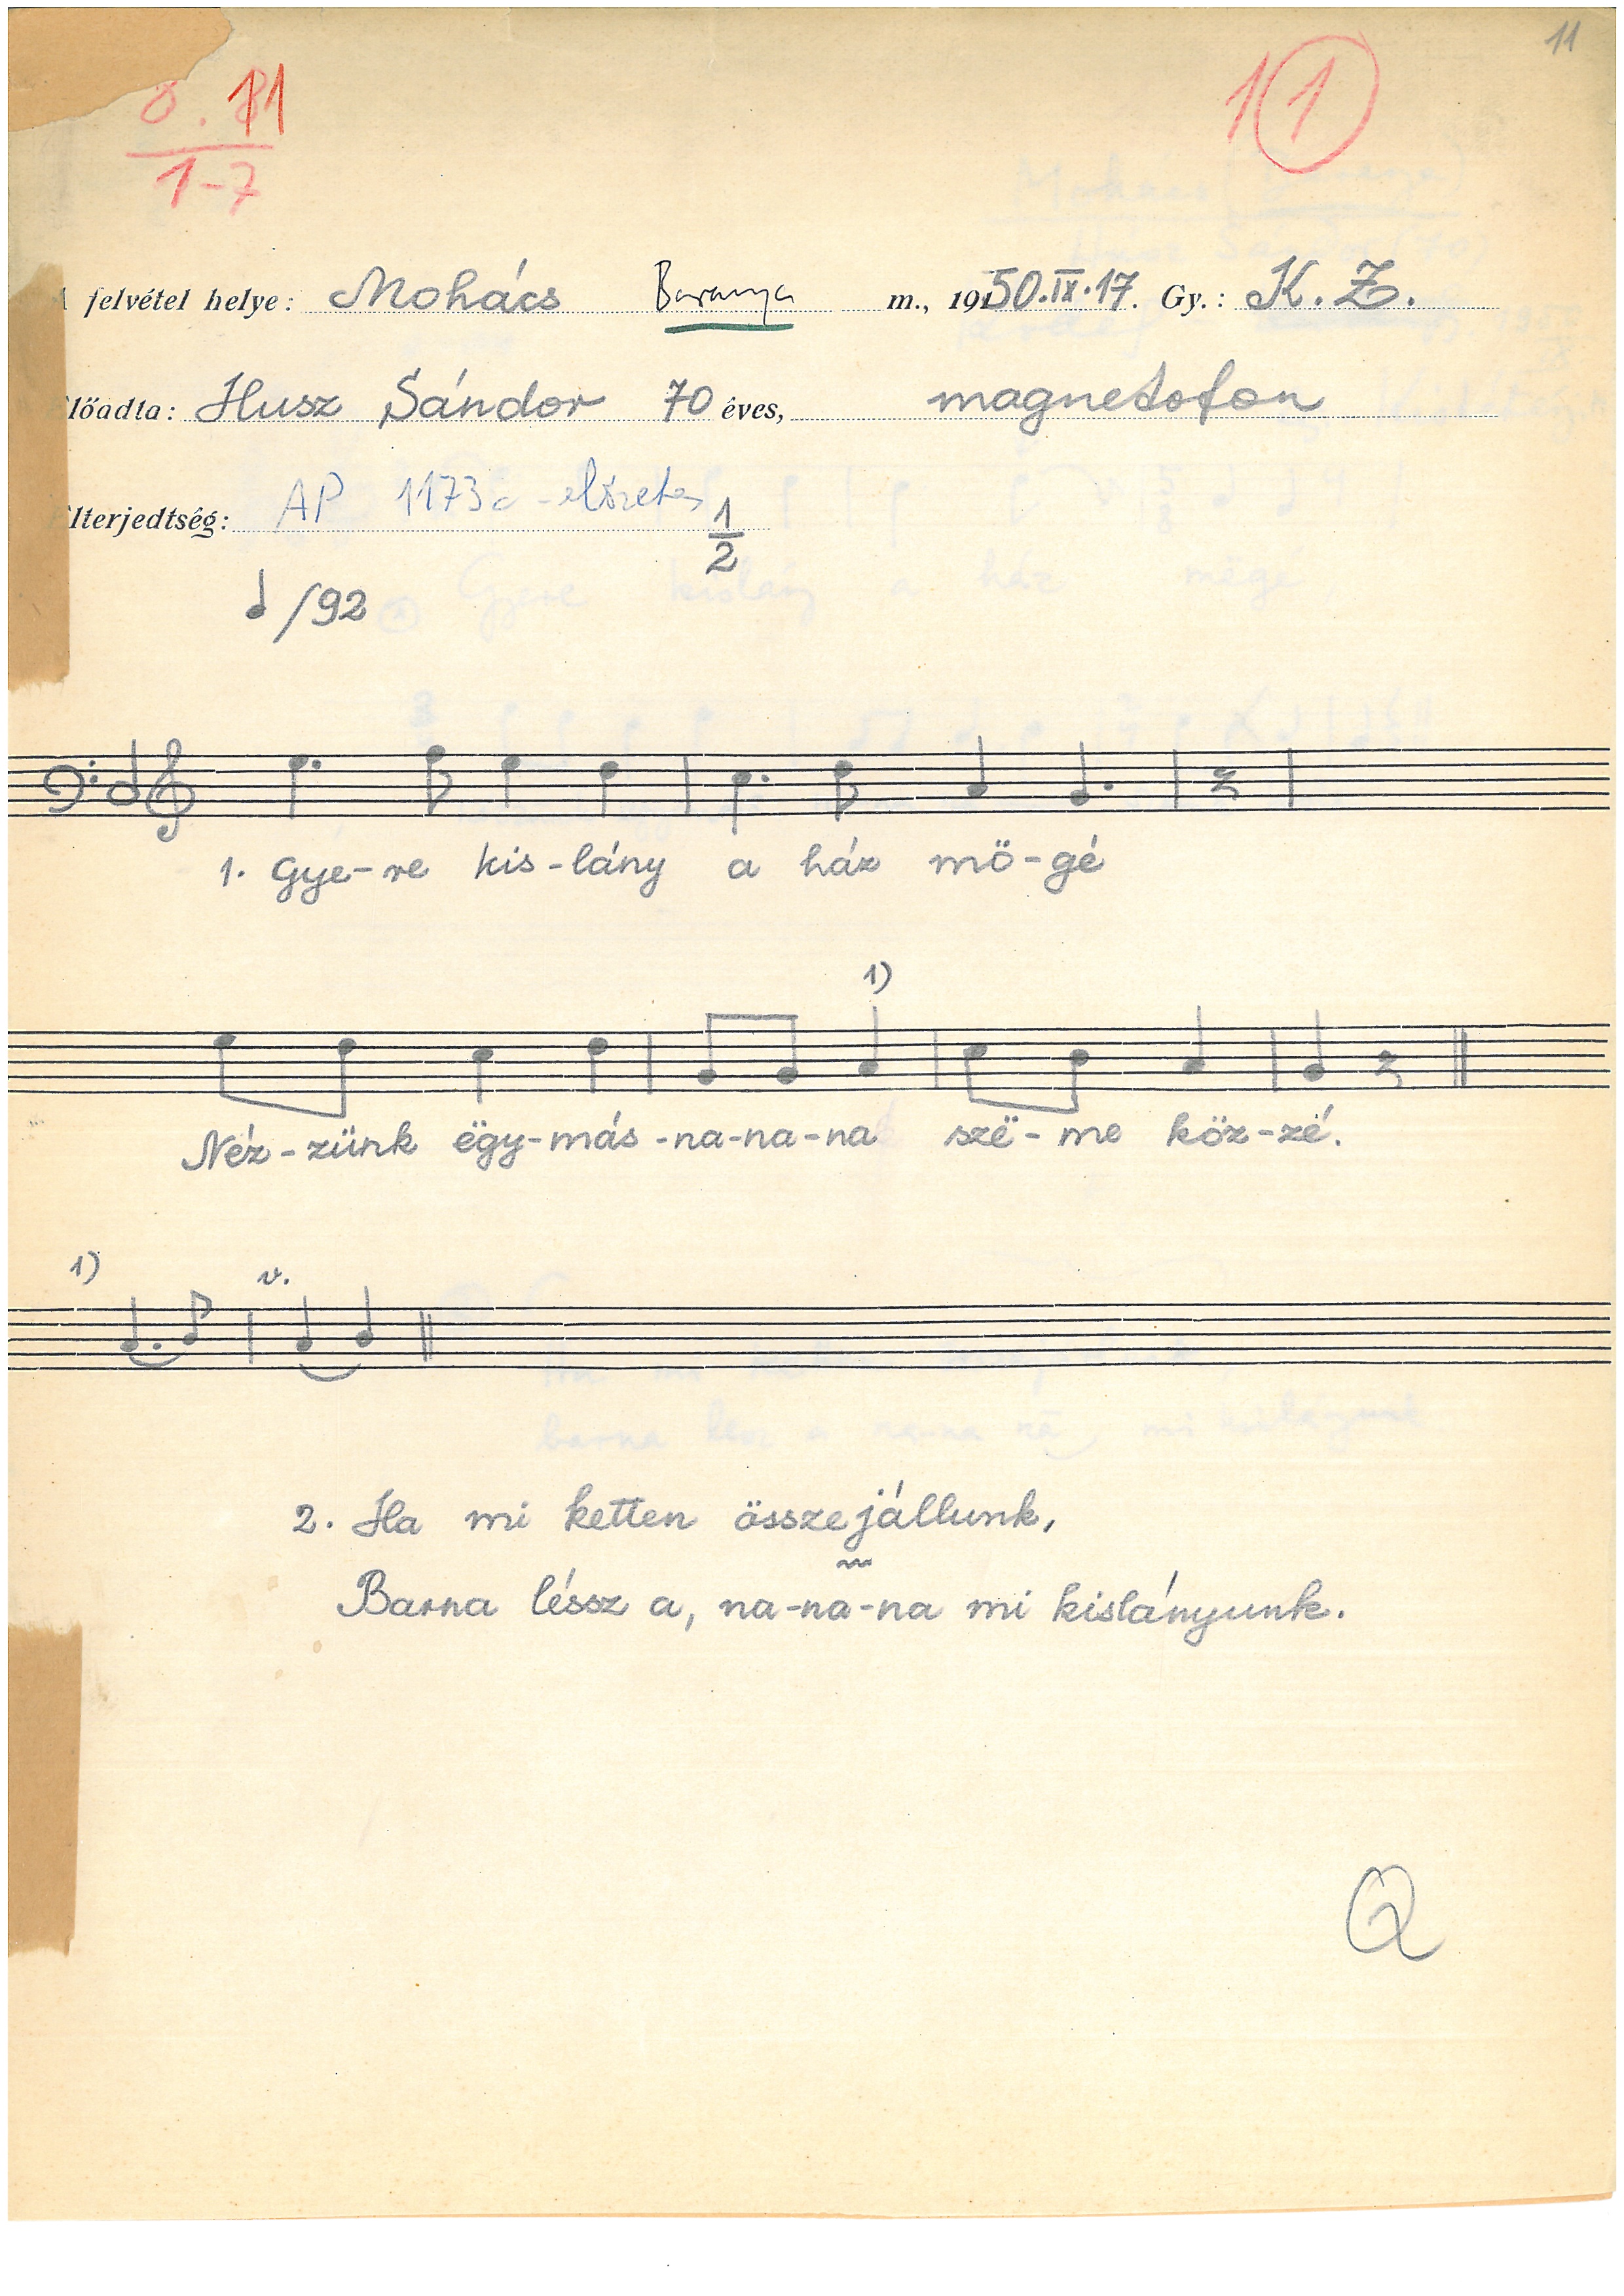 11
1 1
1-7
felvétel helye: Mohács Baranya m., 1950.IX.17. Gy.: K. Z.
lőadta: Husz Sándor 70 éves, magnetofon
lterjedtség: AP 1173 előzetes 1/2
/92
1. Gye-re kis-lány a ház mö-gé
1)
Néz-zünk ëgy-más -na-na-na szë-me köz-zé.
1) v.
2. Ha mi ketten összejállunk,
Barna léssz a, na-na-na mi kislányunk.